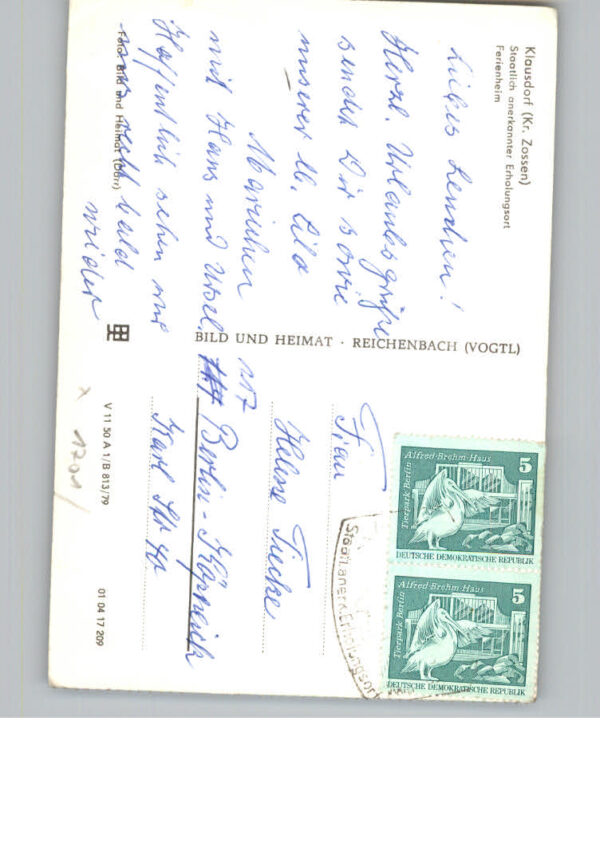 Klausdorf (Kr. Zossen)
Staatlich anerkannter Erholungsort
Ferienheim
Liebes Lenchen!
Herzl. Urlaubsgrüße
sendet Dir sowie
unserer lb. Lila
Mariechen
mit Hans und Ursel.
Hoffentlich sehen wir
uns recht bald
wieder
Foto: Bild und Heimat (Darr)
BILD UND HEIMAT · REICHENBACH (VOGTL)
V 11 50 A 1/B 813/79
01 04 17 209
1201/
Frau
Helene Tiecke
117 Berlin-Köpenick
Karl Str 40
5
Alfred-Brehm-Haus
Tierpark Berlin
DEUTSCHE DEMOKRATISCHE REPUBLIK
5
Alfred-Brehm-Haus
Tierpark Berlin
DEUTSCHE DEMOKRATISCHE REPUBLIK
Staatl. anerk. Erholungsort